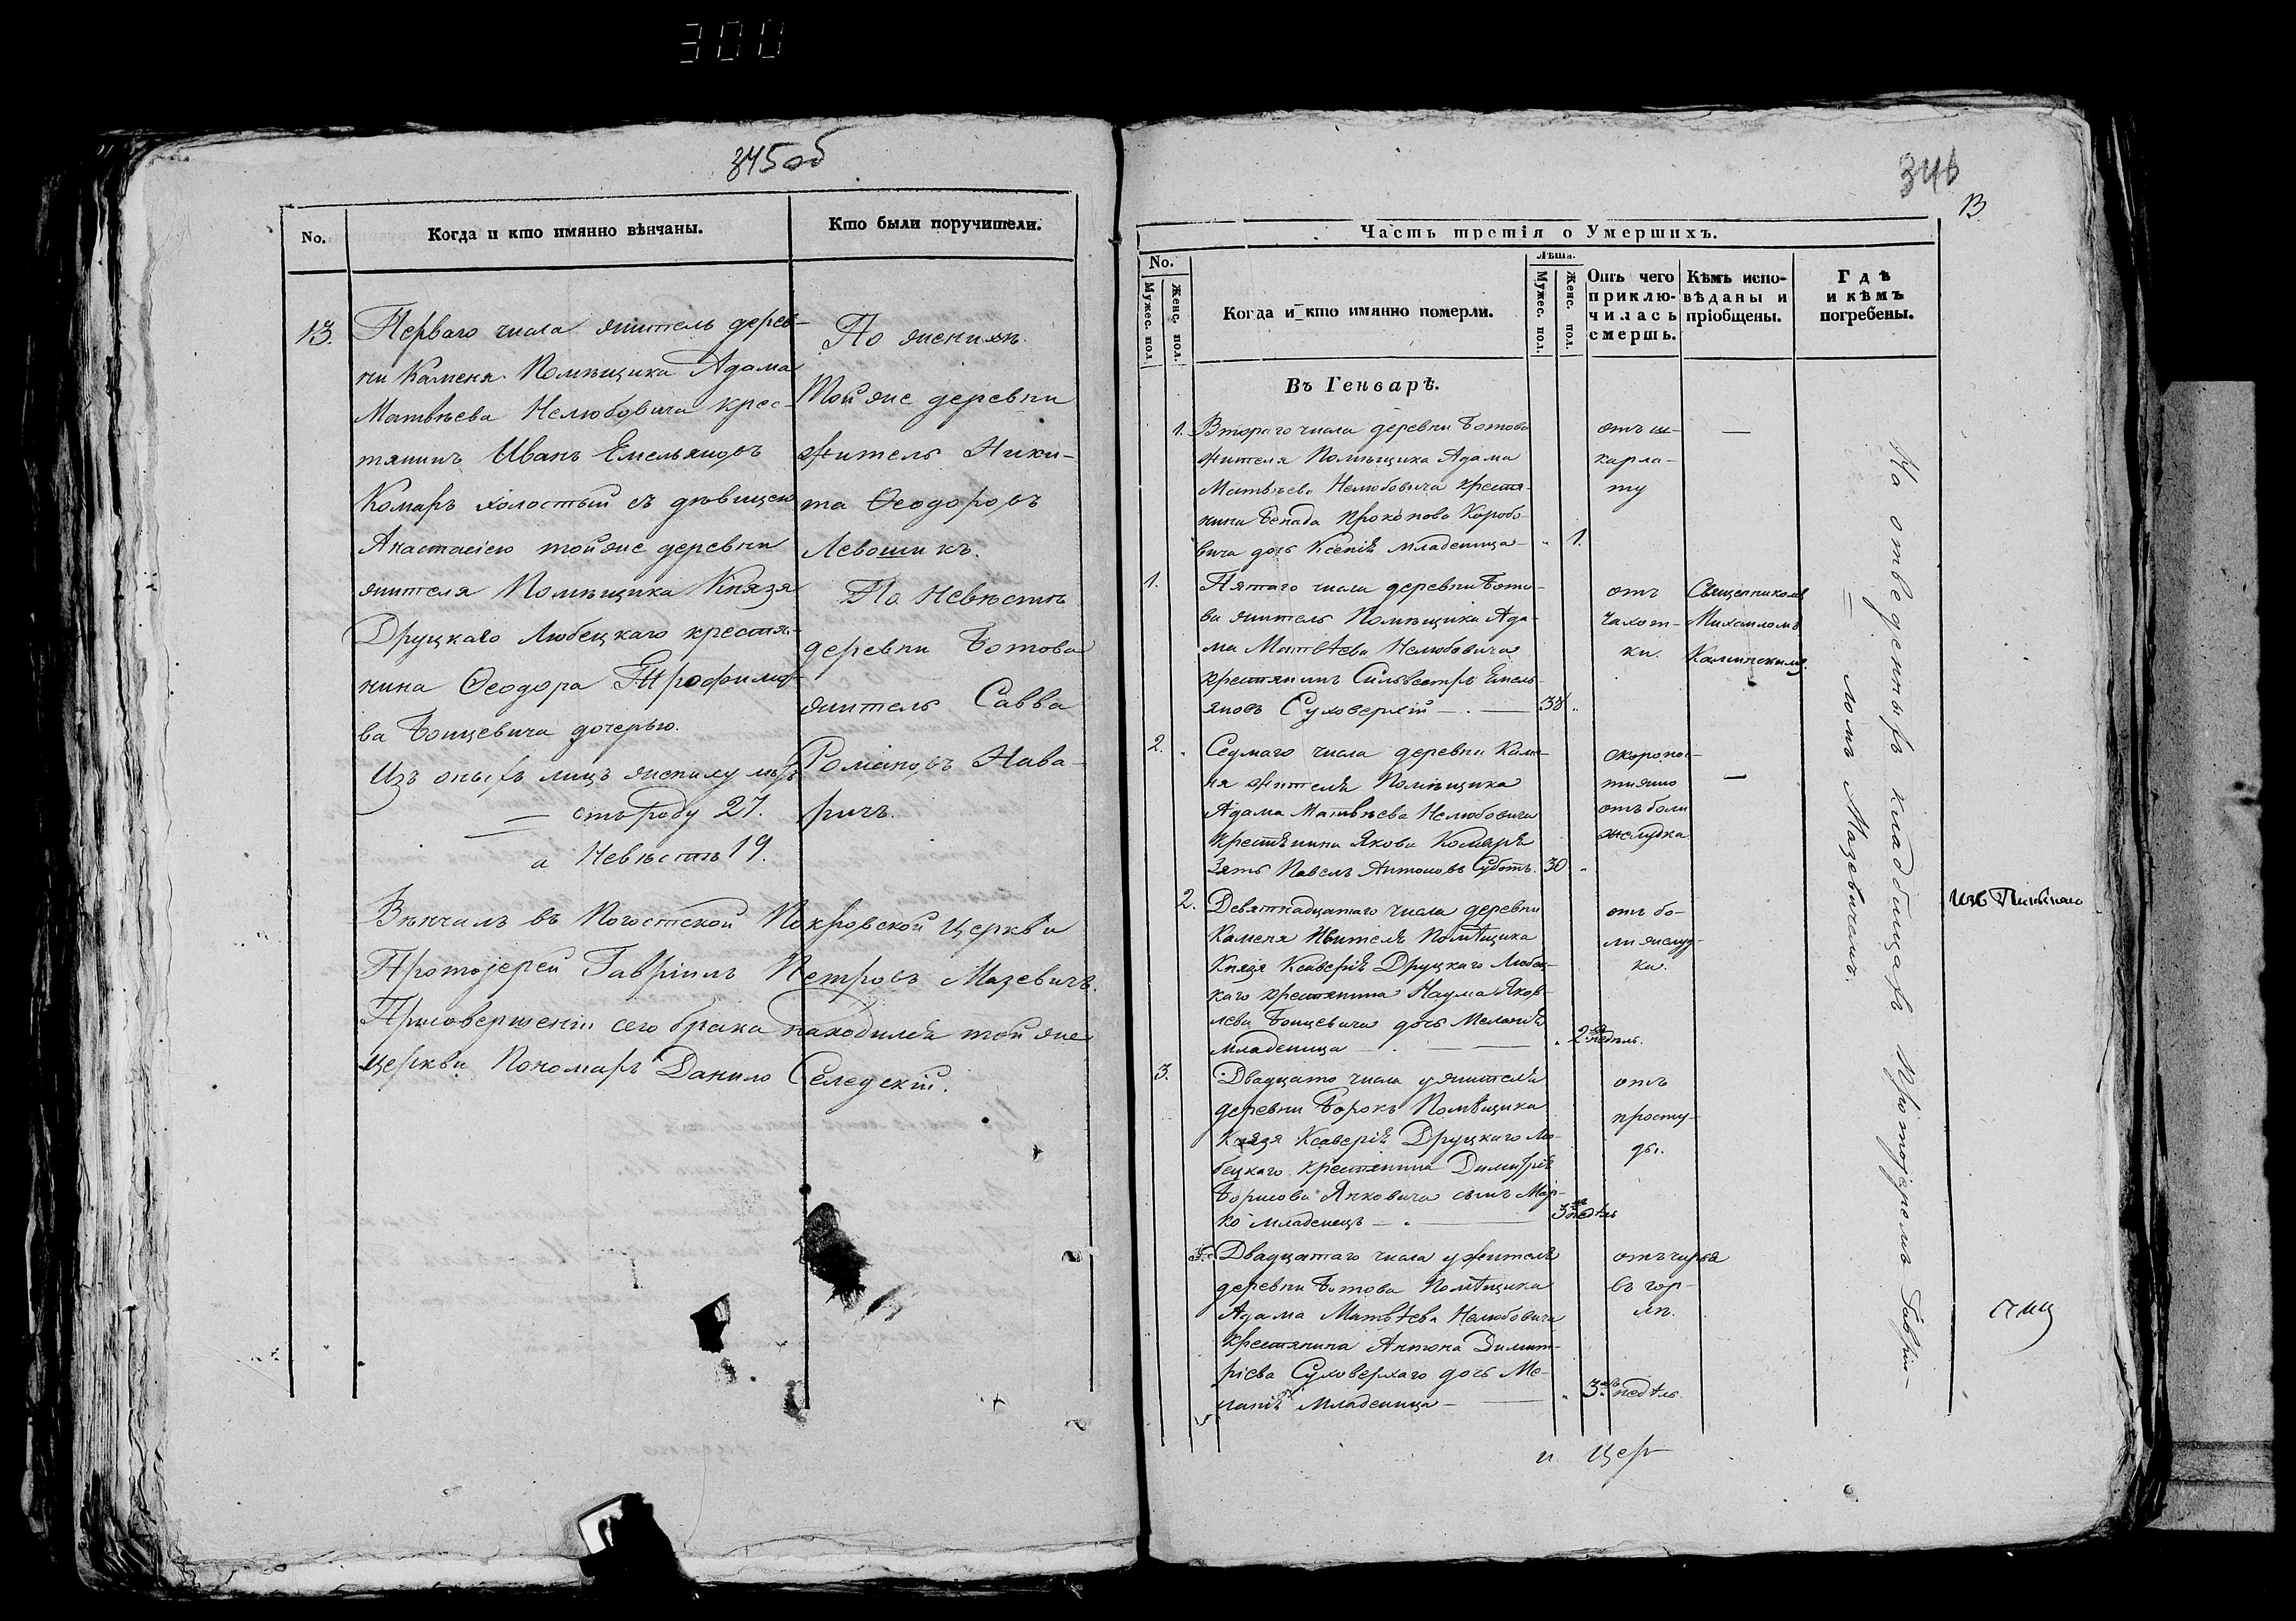 300
345 об
No.
Когда и кто имянно вѣнчаны.
Кто были поручители.
13.
Перваго числа житель дерев-
ни Каменя Помѣщика Адама
Матвѣева Нелюбовича крес-
тянинъ Иванъ Емельяновъ
Комаръ холостый съ дѣвицею
Анастасіею тойже деревни
жителя Помѣщика Князя
Друцкаго Любецкаго крестя-
нина Ѳеодора Трофимо-
ва Боицевича дочерью.
Изъ оныхъ лицъ жениху
отъ роду 27.
а Невѣстѣ 19.
По женихѣ
Той же деревни
житель Ники-
та Ѳеодоровъ
Левошикъ.
По Невѣстѣ
деревни Ботова
житель Савва
Романовъ Нава-
ричъ.
Вѣнчалъ въ Погостской Покровской Церкви
Протоіерей Гавріилъ Петровъ Мазевичъ.
При совершеніи сего брака находился той же
Церкви Пономарь Данило Селедскій.
346
Часть третія о Умершихъ.
No.
Мужес. пол.
Женс. пол.
Когда и кто имянно померли.
Лѣта.
Мужес. пол.
Женс. пол.
Отъ чего приклю-
чилась
смерть.
Кѣмъ испо-
вѣданы и
пріобщены.
Гдѣ
и кѣмъ
погребены.
Въ Генварѣ.
1.
Втораго числа деревни Ботова
жителя Помѣщика Адама
Матвѣева Нелюбовича крестя-
нина Прокопова Коробо-
вича дочь Ксенія младеница
1.
отъ ш-
карла-
ту
1.
Пятаго числа деревни Бото-
ва житель Помѣщика Ада-
ма Матвѣева Нелюбовича
крестянинъ Сильвестръ Емель-
яновъ Суховерхій
38
отъ
чахот-
ки.
Священникомъ
Михаиломъ
Каминскимъ
2.
Седмаго числа деревни Каме-
ня жителя Помѣщика
Адама Матвѣева Нелюбовича
крестянина Якова Комаря
Зять Павелъ Антоновъ Суботъ.
30
скоропос-
тижно
отъ боли
желудка
2.
Девятнадцатаго числа деревни
Каменя жителя Помѣщика
Князя Ксаверія Друцкаго Любец-
каго крестянина Наума Яков-
лева Боицевича дочь Меланія
младеница
2 недѣль.
отъ бо-
ли желуд-
ка.
3.
Двадцато числа у жителя
деревни Борокъ Помѣщика
Князя Ксаверія Друцкаго Лю-
бецкаго крестянина Димитрія
Борисова Янковича сынъ Мар-
ко младенецъ
3 недѣль
отъ
просту-
ды.
3.
Двадцатаго числа у жителя
деревни Ботова Помѣщика
Адама Матвѣева Нелюбовича
крестянина Антона Димит-
ріева Суховерхаго дочь Ме-
ланія младеница
3 недѣль.
отъ чирья
въ гор-
лѣ.
На отведенныхъ кладбищахъ Протоіереемъ Гавріи-
ломъ Мазевичемъ.
и Цер